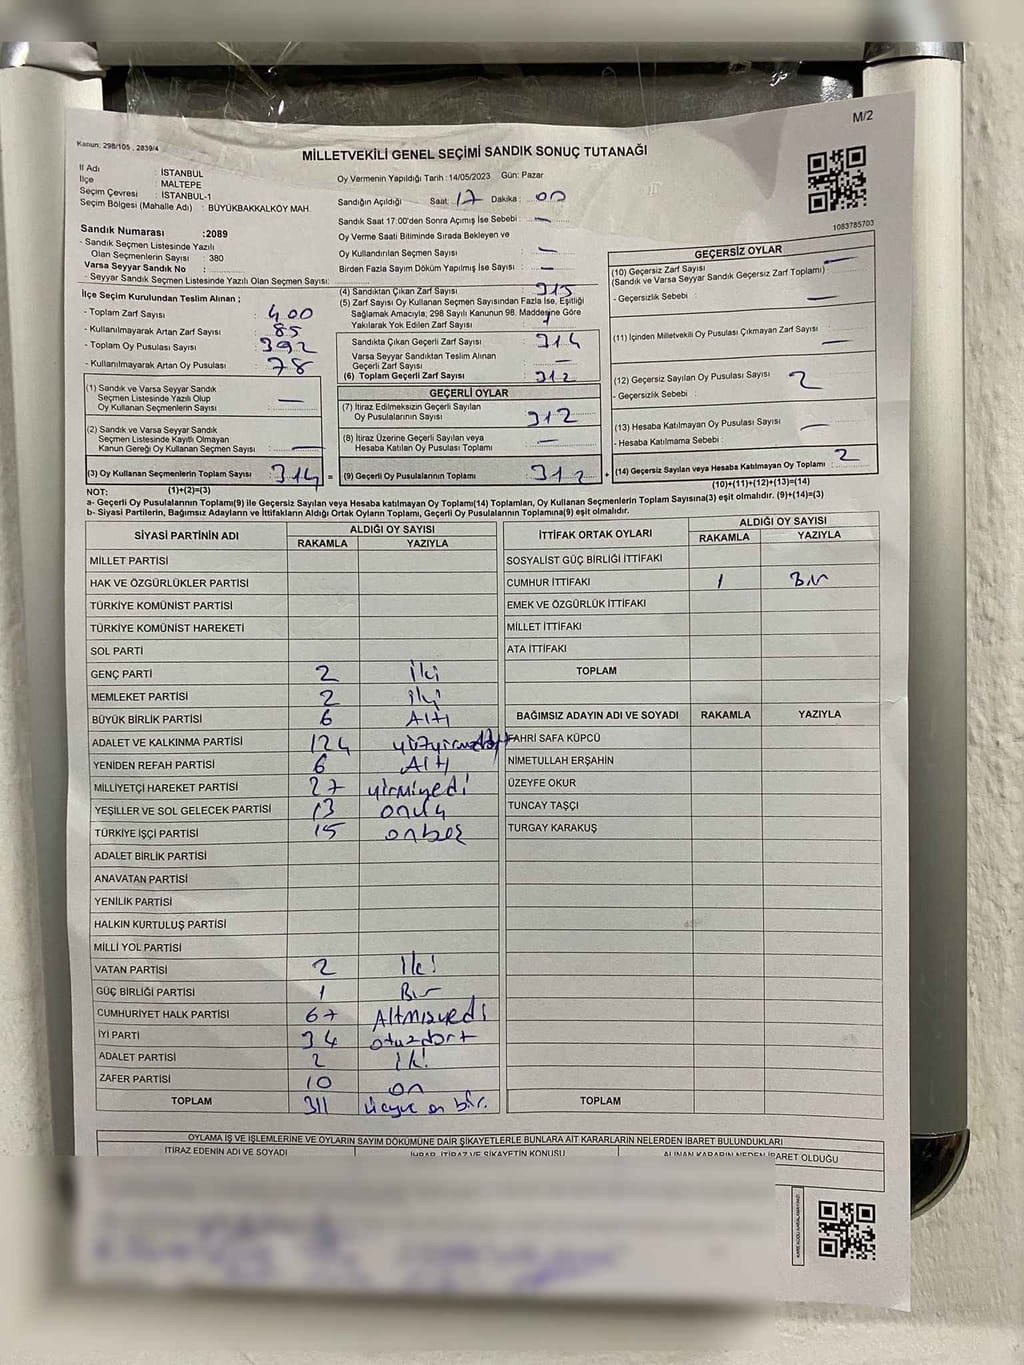 M/2
Kanun: 298/105 , 2839/4
MİLLETVEKİLİ GENEL SEÇİMİ SANDIK SONUÇ TUTANAĞI
İl Adı : İSTANBUL
İlçe : MALTEPE
Seçim Çevresi : İSTANBUL-1
Seçim Bölgesi (Mahalle Adı) : BÜYÜKBAKKALKÖY MAH.
Sandık Numarası :2089
- Sandık Seçmen Listesinde Yazılı
Olan Seçmenlerin Sayısı : 380
Varsa Seyyar Sandık No :
- Seyyar Sandık Seçmen Listesinde Yazılı Olan Seçmen Sayısı:
İlçe Seçim Kurulundan Teslim Alınan ;
- Toplam Zarf Sayısı : 400
- Kullanılmayarak Artan Zarf Sayısı : 85
- Toplam Oy Pusulası Sayısı : 392
- Kullanılmayarak Artan Oy Pusulası : 78
(1) Sandık ve Varsa Seyyar Sandık
Seçmen Listesinde Yazılı Olup
Oy Kullanan Seçmenlerin Sayısı : —
(2) Sandık ve Varsa Seyyar Sandık
Seçmen Listesinde Kayıtlı Olmayan
Kanun Gereği Oy Kullanan Seçmen Sayısı : —
(3) Oy Kullanan Seçmenlerin Toplam Sayısı : 314
(1)+(2)=(3)
Oy Vermenin Yapıldığı Tarih : 14/05/2023 Gün: Pazar
Sandığın Açıldığı Saat: 17 Dakika : 00
Sandık Saat 17:00'den Sonra Açımış İse Sebebi : —
Oy Verme Saati Bitiminde Sırada Bekleyen ve
Oy Kullandırılan Seçmen Sayısı : —
Birden Fazla Sayım Döküm Yapılmış İse Sayısı : —
(4) Sandıktan Çıkan Zarf Sayısı : 315
(5) Zarf Sayısı Oy Kullanan Seçmen Sayısından Fazla İse, Eşitliği
Sağlamak Amacıyla; 298 Sayılı Kanunun 98. Maddesine Göre
Yakılarak Yok Edilen Zarf Sayısı : 1
Sandıkta Çıkan Geçerli Zarf Sayısı : 314
Varsa Seyyar Sandıktan Teslim Alınan
Geçerli Zarf Sayısı : —
(6) Toplam Geçerli Zarf Sayısı : 312
GEÇERLİ OYLAR
(7) İtiraz Edilmeksizin Geçerli Sayılan
Oy Pusulalarının Sayısı : 312
(8) İtiraz Üzerine Geçerli Sayılan veya
Hesaba Katılan Oy Pusulası Toplamı : —
= (9) Geçerli Oy Pusulalarının Toplamı : 312 +
1083785703
GEÇERSİZ OYLAR
(10) Geçersiz Zarf Sayısı : —
(Sandık ve Varsa Seyyar Sandık Geçersiz Zarf Toplamı)
- Geçersizlik Sebebi : —
(11) İçinden Milletvekili Oy Pusulası Çıkmayan Zarf Sayısı : —
(12) Geçersiz Sayılan Oy Pusulası Sayısı : 2
- Geçersizlik Sebebi :
(13) Hesaba Katılmayan Oy Pusulası Sayısı : —
- Hesaba Katılmama Sebebi :
(14) Geçersiz Sayılan veya Hesaba Katılmayan Oy Toplamı : 2
(10)+(11)+(12)+(13)=(14)
NOT:
a- Geçerli Oy Pusulalarının Toplamı(9) ile Geçersiz Sayılan veya Hesaba katılmayan Oy Toplamı(14) Toplamları, Oy Kullanan Seçmenlerin Toplam Sayısına(3) eşit olmalıdır. (9)+(14)=(3)
b- Siyasi Partilerin, Bağımsız Adayların ve İttifakların Aldığı Ortak Oyların Toplamı, Geçerli Oy Pusulalarının Toplamına(9) eşit olmalıdır.
SİYASİ PARTİNİN ADI ALDIĞI OY SAYISI
RAKAMLA YAZIYLA
MİLLET PARTİSİ
HAK VE ÖZGÜRLÜKLER PARTİSİ
TÜRKİYE KOMÜNİST PARTİSİ
TÜRKİYE KOMÜNİST HAREKETİ
SOL PARTİ
GENÇ PARTİ 2 iki
MEMLEKET PARTİSİ 2 iki
BÜYÜK BİRLİK PARTİSİ 6 Altı
ADALET VE KALKINMA PARTİSİ 124 yüzyirmidört
YENİDEN REFAH PARTİSİ 6 Altı
MİLLİYETÇİ HAREKET PARTİSİ 27 yirmiyedi
YEŞİLLER VE SOL GELECEK PARTİSİ 13 onüç
TÜRKİYE İŞÇİ PARTİSİ 15 onbeş
ADALET BİRLİK PARTİSİ
ANAVATAN PARTİSİ
YENİLİK PARTİSİ
HALKIN KURTULUŞ PARTİSİ
MİLLİ YOL PARTİSİ
VATAN PARTİSİ 2 iki
GÜÇ BİRLİĞİ PARTİSİ 1 Bir
CUMHURİYET HALK PARTİSİ 67 Altmışyedi
İYİ PARTİ 34 otuzdört
ADALET PARTİSİ 2 iki
ZAFER PARTİSİ 10 on
TOPLAM 311 üçyüz on bir.
İTTİFAK ORTAK OYLARI ALDIĞI OY SAYISI
RAKAMLA YAZIYLA
SOSYALİST GÜÇ BİRLİĞİ İTTİFAKI
CUMHUR İTTİFAKI 1 Bir
EMEK VE ÖZGÜRLÜK İTTİFAKI
MİLLET İTTİFAKI
ATA İTTİFAKI
TOPLAM
BAĞIMSIZ ADAYIN ADI VE SOYADI RAKAMLA YAZIYLA
FAHRİ SAFA KÜPCÜ
NİMETULLAH ERŞAHİN
ÜZEYFE OKUR
TUNCAY TAŞÇI
TURGAY KARAKUŞ
TOPLAM
OYLAMA İŞ VE İŞLEMLERİNE VE OYLARIN SAYIM DÖKÜMÜNE DAİR ŞİKAYETLERLE BUNLARA AİT KARARLARIN NELERDEN İBARET BULUNDUKLARI
İTİRAZ EDENİN ADI VE SOYADI İHBAR, İTİRAZ VE ŞİKAYETİN KONUSU ALINAN KARARIN NEDEN İBARET OLDUĞU